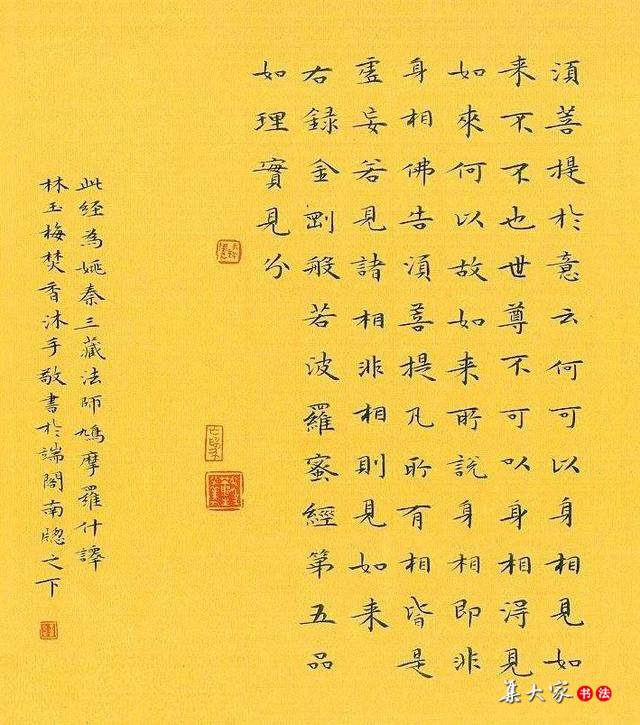 須菩提於意云何可以身相見如
来不不也世尊不可以身相得見
如來何以故如来所說身相即非
身相佛告須菩提凡所有相皆是
虛妄若見諸相非相則見如来
右録金剛般若波羅蜜經第五品
如理實見分
此経為姚秦三藏法師鳩摩羅什譯
林玉梅焚香沐手敬書於端閣南牕之下
集大家书法